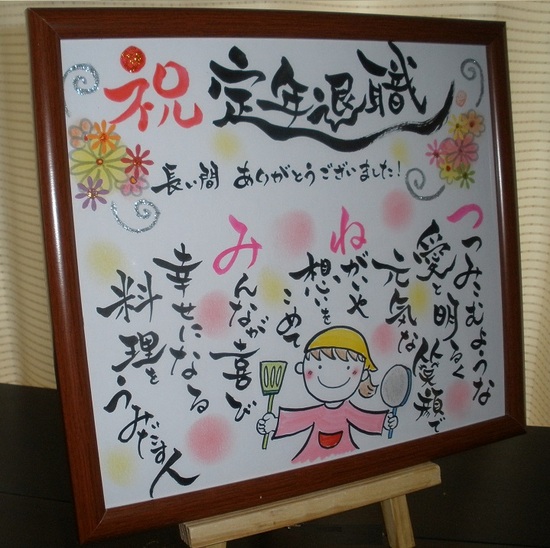 祝 定年退職
長い間 ありがとうございました!
つつみこむような
愛と明るく
元気な笑顔で
ねがいや
想いを
こめて
みんなが喜び
幸せになる
料理をうみだす人